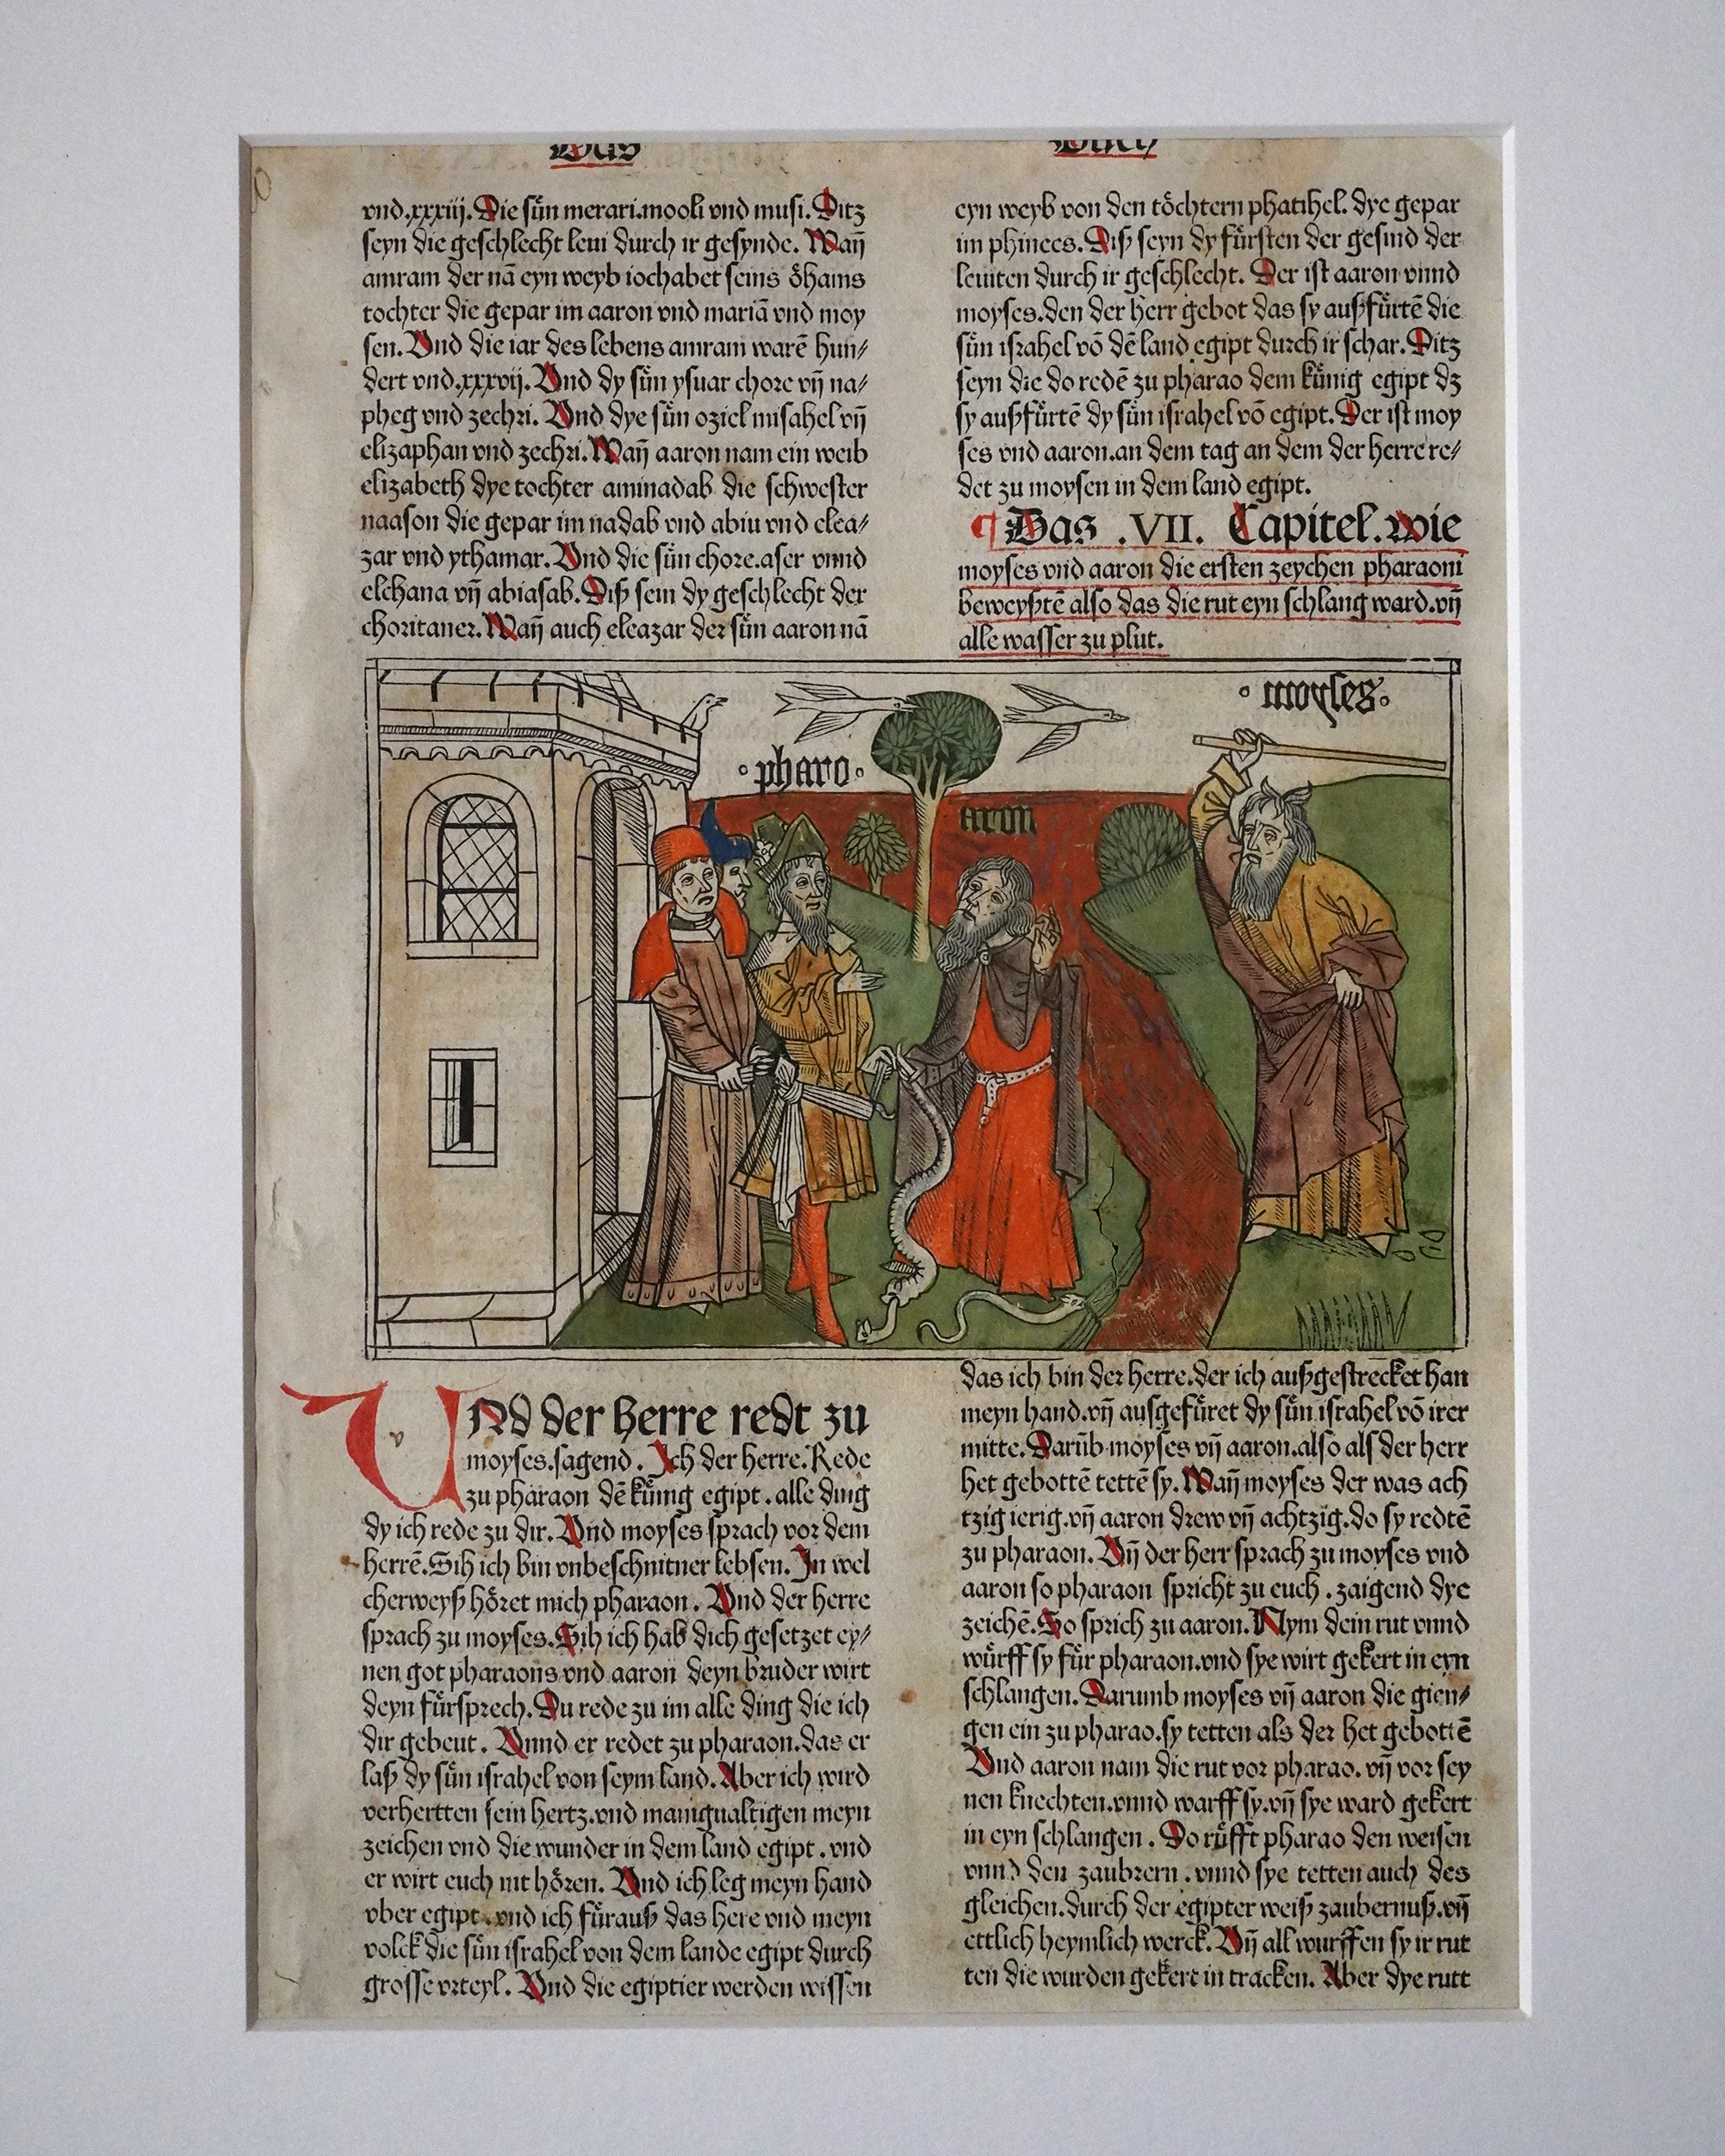 Das
Buch
vnd.xxxiij. Die sün merari.mooli vnd musi. Ditz
seyn die geschlecht leui durch ir gesynde. Wañ
amram der nā eyn weyb iochabet seins öhams
tochter die gepar im aaron vnd mariā vnd moy
sen. Vnd die iar des lebens amram warē hun⸗
dert vnd.xxxvij. Vnd dy sün ysuar chore vñ na⸗
pheg vnd zechri. Vnd dye sün oziel misahel vñ
elizaphan vnd zechri. Wañ aaron nam ein weib
elizabeth dye tochter aminadab die schwester
naason die gepar im nadab vnd abiu vnd elea⸗
zar vnd ythamar. Vnd die sün chore.aser vnnd
elchana vñ abiasab. Diß sein dy geschlecht der
choritaner. Wañ auch eleazar der sün aaron nā
eyn weyb von den töchtern phatihel. dye gepar
im phinees. Diß seyn dy fürsten der gesind der
leuiten durch ir geschlecht. Der ist aaron vnnd
moyses.den der herr gebot das sy außfürtē die
sün israhel vō dē land egipt durch ir schar. Ditz
seyn die do redē zu pharao dem künig egipt dz
sy außfürtē dy sün israhel vō egipt. Der ist moy
ses vnd aaron.an dem tag an dem der herre re⸗
det zu moysen in dem land egipt.
¶ Das .VII. Capitel. wie
moyses vnd aaron die ersten zeychen pharaoni
beweyßtē also das die rut eyn schlang ward.vñ
alle wasser zu plut.
moyses
pharo
aron
VNd der herre redt zu
moyses.sagend. Ich der herre. Rede
zu pharaon dē künig egipt. alle ding
dy ich rede zu dir. Vnd moyses sprach vor dem
herrē. Sih ich bin vnbeschnitner lebsen. In wel
cherweyß höret mich pharaon. Vnd der herre
sprach zu moyses. Sih ich hab dich gesetzet ey⸗
nen got pharaons vnd aaron deyn bruder wirt
deyn fürsprech. Du rede zu im alle ding die ich
dir gebeut. Vnnd er redet zu pharaon.das er
laß dy sün israhel von seym land. Aber ich wird
verhertten sein hertz.vnd manigualtigen meyn
zeichen vnd die wunder in dem land egipt. vnd
er wirt euch nit hören. Vnd ich leg meyn hand
vber egipt.vnd ich fürauß das here vnd meyn
volck die sün israhel von dem lande egipt durch
grosse vrteyl. Vnd die egiptier werden wissen
das ich bin der herre.der ich außgestrecket han
meyn hand.vñ ausgefüret dy sün israhel vō irer
mitte. Darūb moyses vñ aaron.also als der herr
het gebottē tettē sy. Wañ moyses der was ach
tzig ierig.vñ aaron drew vñ achtzig.do sy redtē
zu pharaon. Vñ der herr sprach zu moyses vnd
aaron so pharaon spricht zu euch. zaigend dye
zeichē. So sprich zu aaron. Nym dein rut vnnd
würff sy für pharaon.vnd sye wirt gekert in eyn
schlangen. Darumb moyses vñ aaron die gien⸗
gen ein zu pharao.sy tetten als der het gebottē
Vnd aaron nam die rut vor pharao. vñ vor sey
nen knechten.vnnd warff sy.vñ sye ward gekert
in eyn schlangen. Do rüfft pharao den weisen
vnnd den zaubrern. vnnd sye tetten auch des
gleichen.durch der egipter weiß zaubernuß.vñ
ettlich heymlich werck. Vñ all wurffen sy ir rut
ten die wurden gekert in tracken. Aber dye rutt